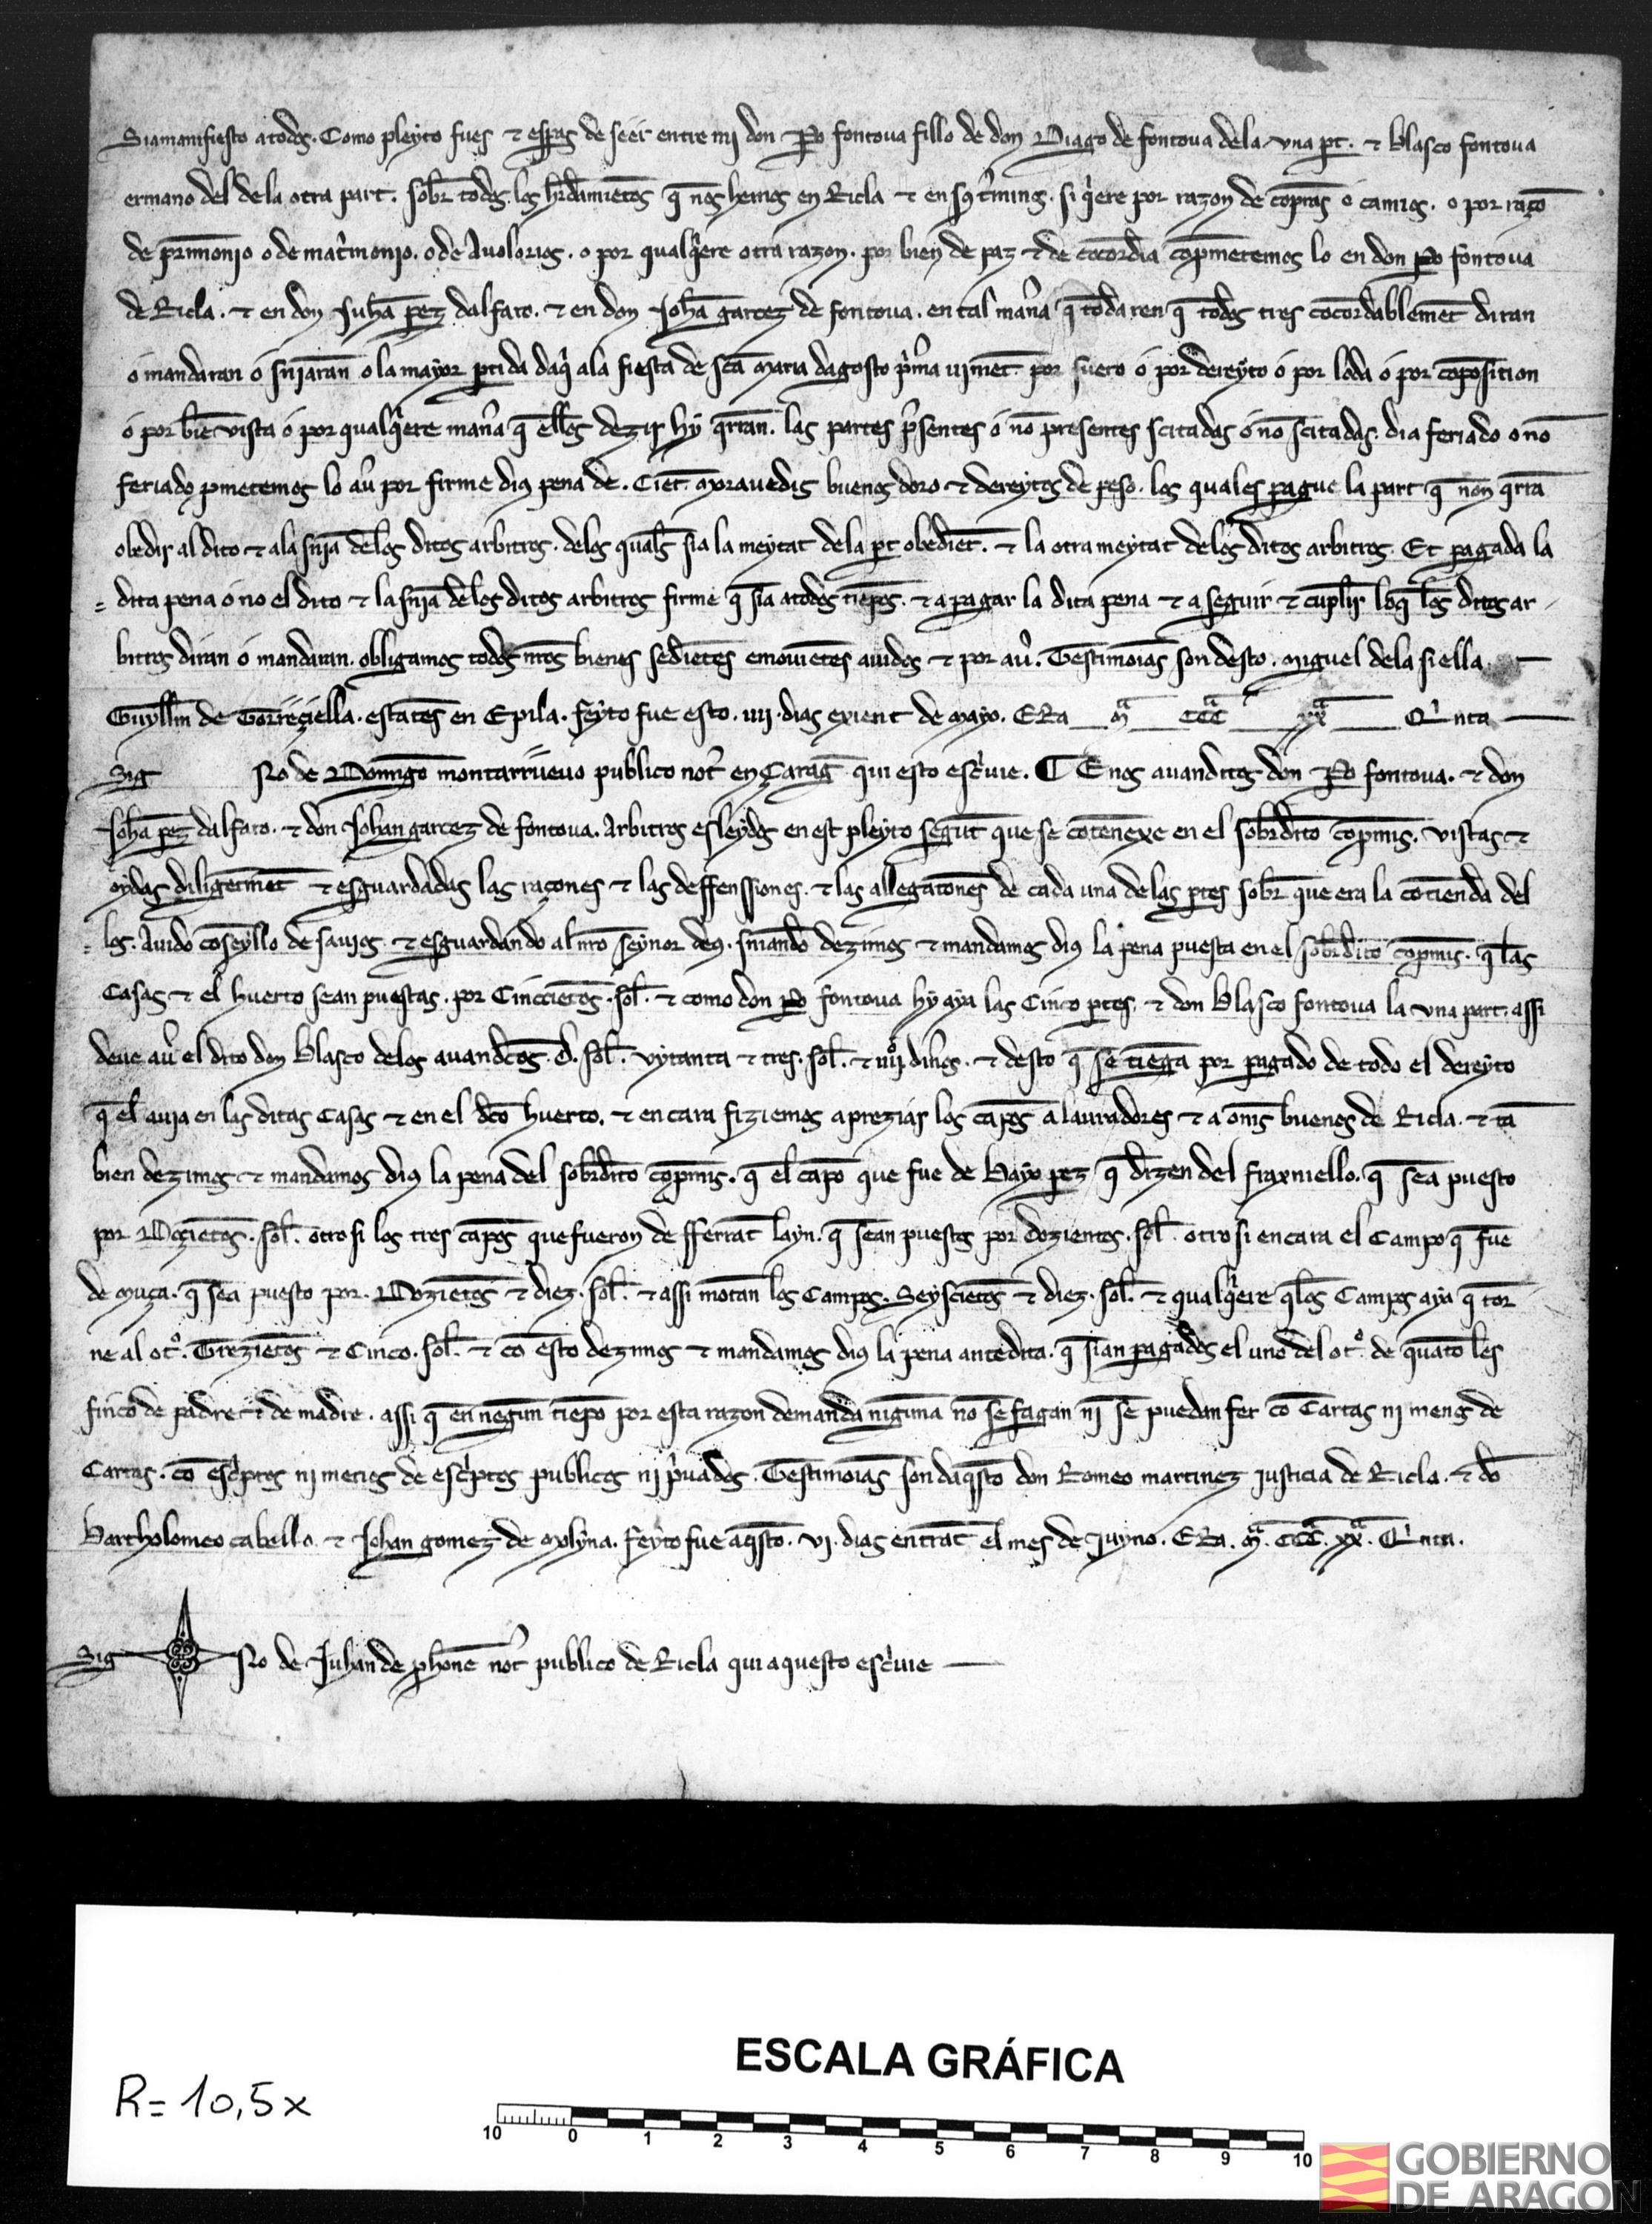 Sia manifiesto a todos. Como pleyto fues ⁊ esꝑas de seer entre mi don Po fontoua fillo de don Diago de fontoua dela una ꝑt. ⁊ Blasco fontoua
ermano del de la otra part. sobr̄ todos los h̄rdamiētos q̄ nos hemos en Ricla ⁊ en sꝯ t̄minos. si q̄ere por razon de cōpras o camios. o por raçō
de pr̄imonio o de mat̄monio. o de Auolorios. o por qualq̄ere otra razon. por bien de paz ⁊ de cōcordia cōpmetemos lo en don Po fontoua
de Ricla. ⁊ en don Juhā ꝑez dalfaro. ⁊ en don Johā garcez de fontoua. en tal man̄a q̄ toda ren q̄ todos tres cōcordablemēt diran
o mandaran o sn̄iaran o la mayor ꝑtida daq̄ ala fiesta de sc̄a Maria dagosto p̄ma uiniēt por fuero o por dereyto o por loda o por cōposition
o por biē vista o por qualq̄ere man̄a q̄ ellos dezir hy q̄rran. las partes p̄sentes o nō presentes scitadas o nō scitadas. dia feriado o nō
feriado ꝓmetemos lo aū por firme diꝯ pena de. Ciēt morauedis buenos doro ⁊ dereytos de peso. los quales pague la part q̄ non q̄rra
obedir al dito ⁊ ala sn̄ia delos ditos arbitros. delos quals̄ sia la meytat dela ꝑt obediēt. ⁊ la otra meytat delos ditos arbitros. Et pagada la
dita pena o no el dito ⁊ la sn̄ia delos ditos arbitros firme q̄ sia a todos tiēpos. ⁊ a pagar la dita pena ⁊ a seguir ⁊ cūplir lo q̄ los ditos ar
bitros diran o mandaran. obligamos todos nr̄os bienes sediētes e mouiētes auidos ⁊ por aū. Testimoīas son desto. Miguel dela siella
Guyllm̄ de Torreçiella. estātes en Epila. feyto fue esto. iiij. dias exient de mayo. ERa Mª CCCª xxª Q̄nta
Sig No de Domīgo montarrueuo publico not̄ en Çaraḡ qui esto esc̄uie. ¶ E nos auanditos don Po fontoua. ⁊ don
Johā ꝑez dalfaro. ⁊ don Johan garcez de fontoua. Arbitros esleydos en est pleyto segūt que se cōtenexe en el sobr̄dito cōpmis. vistas ⁊
oydas diligētmēt ⁊ esguardadas las raçones ⁊ las deffenssiones. ⁊ las allegationes de cada una delas ꝑtes sobr̄ que era la cōtienda del
los. Auido cōseyllo de sauios. ⁊ esguardando al nr̄o seynor deꝯ. sn̄iando dezimos ⁊ mandamos diꝯ la pena puesta en el sobr̄dito cōpmis. q̄ las
Casas ⁊ el huerto sean puestas. por Cinccietos. sol̄. ⁊ como don Po fontoua hy aya las Cinco ꝑtes. ⁊ don Blasco fontoua la una part. assi
deue aū el dito don Blasco delos auandc̄os. D. sol̄. vytanta ⁊ tres. sol̄. ⁊ iiijº din̄s. ⁊ desto q̄ se tiēga por pagado de todo el dereyto
q̄ el auia en las ditas Casas ⁊ en el dc̄o huerto. ⁊ encara fiziemos apreziar los cāpos a lauradores ⁊ a om̄s buenos de Ricla. ⁊ tā
bien dezimos ⁊ mandamos diꝯ la pena del sobr̄dito cōpmis. q̄ el cāpo que fue de Bayo ꝑez q̄ dizen del fraxniello. q̄ sea puesto
por Dozietos. sol̄. otro si los tres cāpos que fueron de fferrāt layn. q̄ sean puestos por dozientos. sol̄. otro si encara el Campo q̄ fue
de Muça. q̄ sea puesto por. Dozietos ⁊ diez. sol̄. ⁊ assi mōtan los Campos. Seyscietos ⁊ diez. sol̄. ⁊ qualq̄ere q̄ los Campos aya q̄ tor
ne al otº. Trezietos ⁊ Cinco. sol̄. ⁊ cō esto dezimos ⁊ mandamos diꝯ la pena antedita. q̄ sian pagados el uno del otº de quāto les
fincō de padre ⁊ de madre. assi q̄ en negun tiēpo por esta razon demanda niguna nō se fagan nj se puedan fer cō Cartas nj menos de
Cartas. cō esc̄ptos ni menos de esc̄ptos publicos nj p̄uados. Testimoīas son daqsto don Romeo martinez iusticia de Ricla. ⁊ dō
Bartholomeo cabello. ⁊ Johan gomez de Molyna. feyto fue aqsto. vj. dias entrāt el mes de Juyno. ERa. Mª. CCCª. xxª. Q̄nta.
Sig No de Juhan de phone not̄ publico de Ricla qui aquesto esc̄uie
ESCALA GRÁFICA
R= 10,5x
10 0 1 2 3 4 5 6 7 8 9 10
GOBIERNO
DE ARAGON